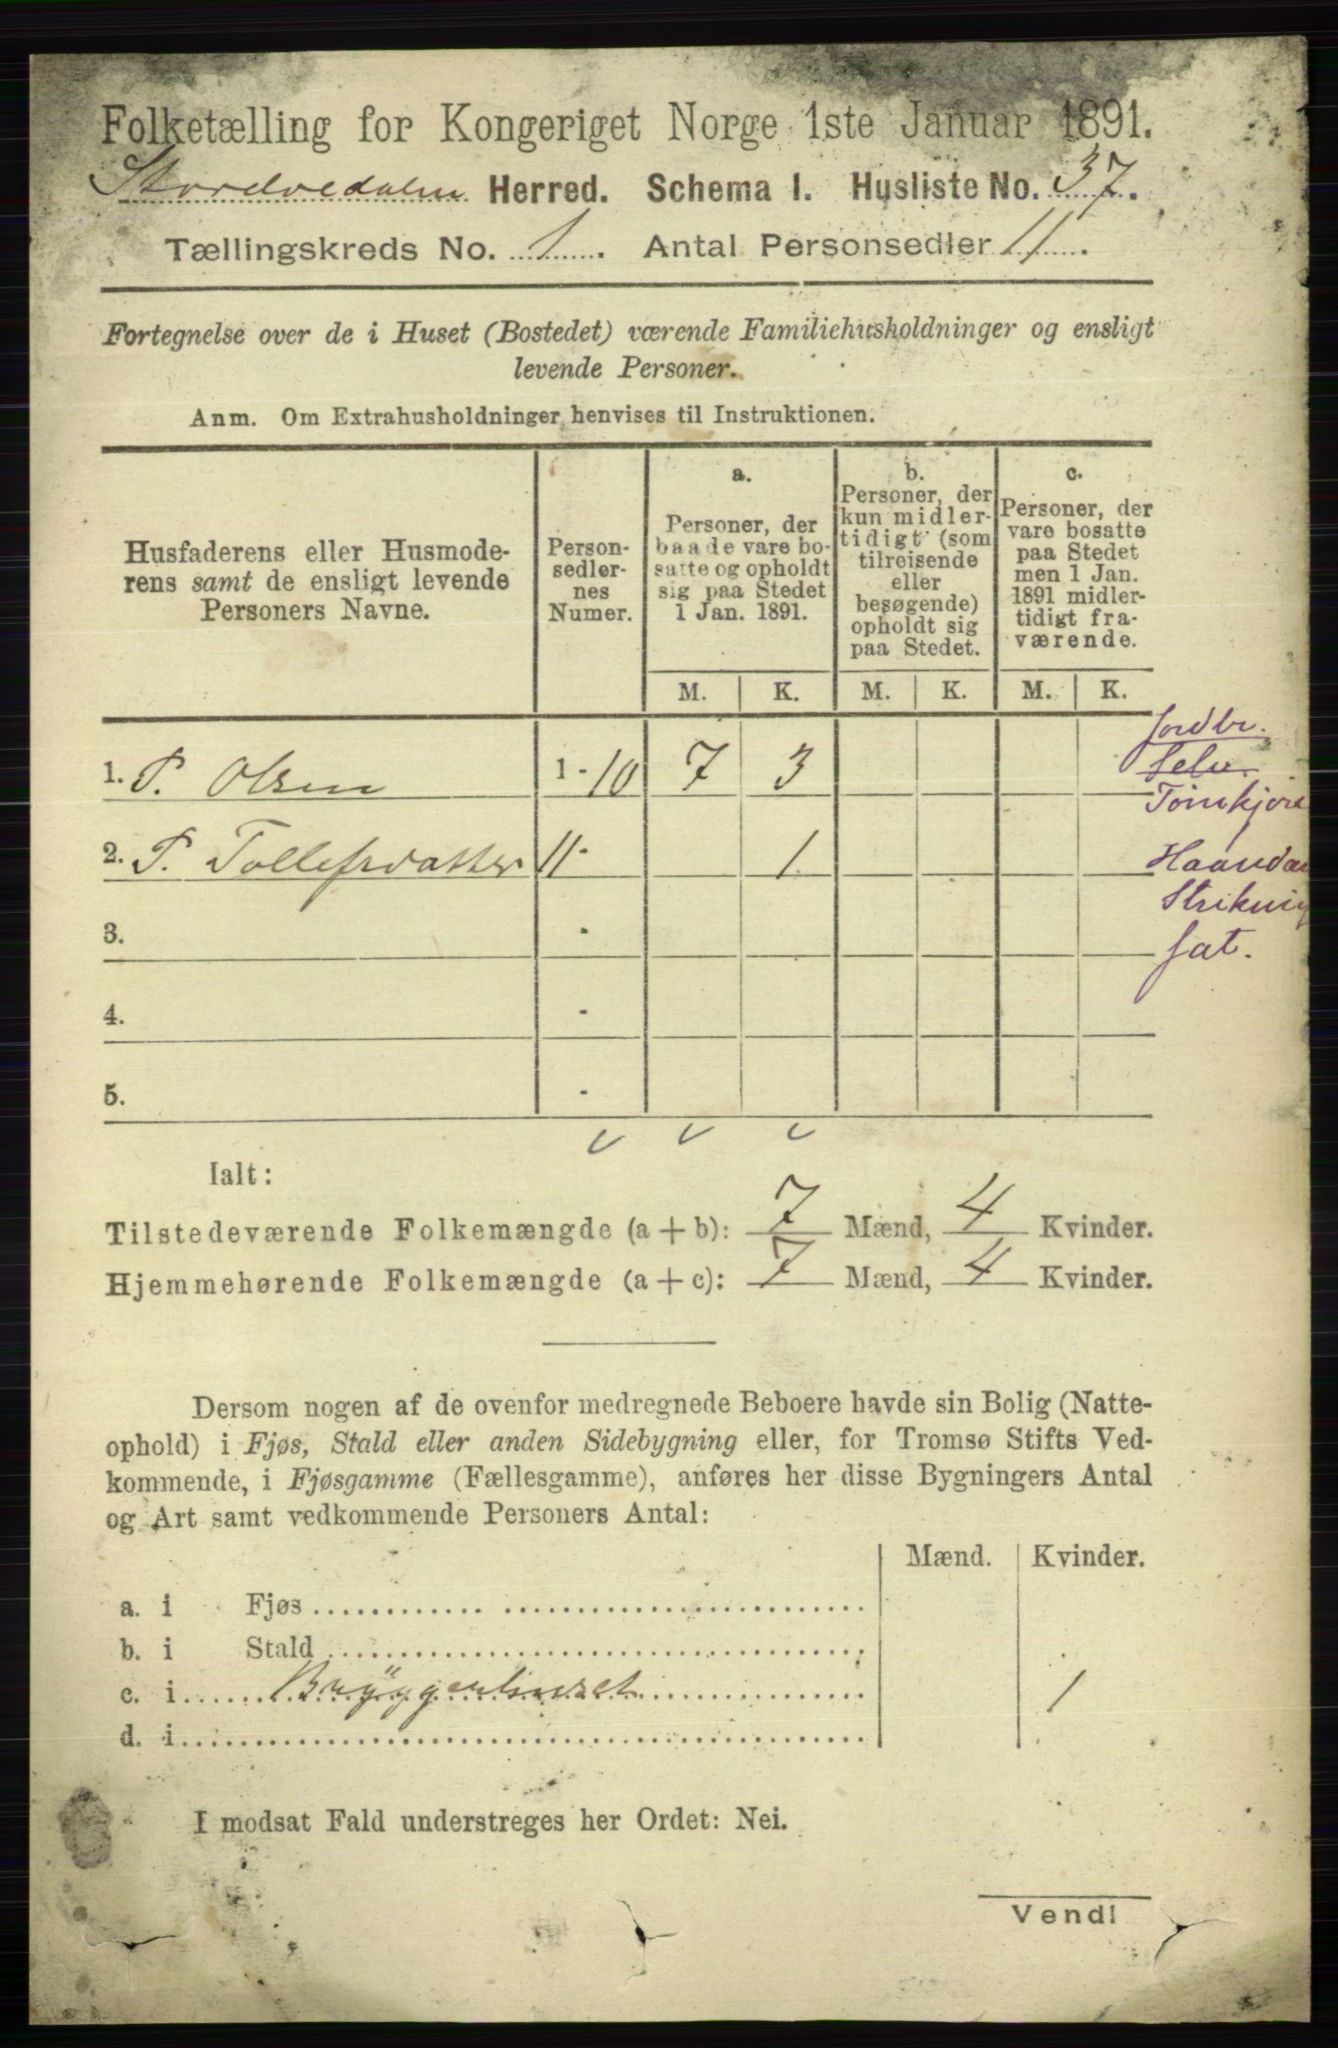 Folketælling for Kongeriget Norge 1ste Januar 1891.
Herred. Schema I. Husliste No. 37.
Tællingskreds No. 1. Antal Personsedler 11.
Fortegnelse over de i Huset (Bostedet) værende Familiehusholdninger og ensligt
levende Personer.
Anm. Om Extrahusholdninger henvises til Instruktionen.
Husfaderens eller Husmode-
rens samt de ensligt levende
Personers Navne.
Person-
sedler-
nes
Numer.
a.
Personer, der
baade vare bo-
satte og opholdt
sig paa Stedet
1 Jan. 1891.
b.
Personer, der
kun midler-
tidigt (som
tilreisende
eller
besøgende)
opholdt sig
paa Stedet.
c.
Personer, der
vare bosatte
paa Stedet
men 1 Jan.
1891 midler-
tidigt fra-
værende.
M. K. M. K. M. K.
1. P. Olsen 1 - 10 7 3
Jordbr.
Selv.
2. P. Tollefsdatter 11 - 1
Haandar
Striknig
fat.
3. -
4. -
5. -
Ialt:
Tilstedeværende Folkemængde (a + b): 7 Mænd, 4 Kvinder.
Hjemmehørende Folkemængde (a + c): 7 Mænd, 4 Kvinder.
Dersom nogen af de ovenfor medregnede Beboere havde sin Bolig (Natte-
ophold) i Fjøs, Stald eller anden Sidebygning eller, for Tromsø Stifts Ved-
kommende, i Fjøsgamme (Fællesgamme), anføres her disse Bygningers Antal
og Art samt vedkommende Personers Antal:
Mænd. Kvinder.
a. i Fjøs
b. i Stald
c. i Bryggerhuset 1
d. i
I modsat Fald understreges her Ordet: Nei.
Vend!